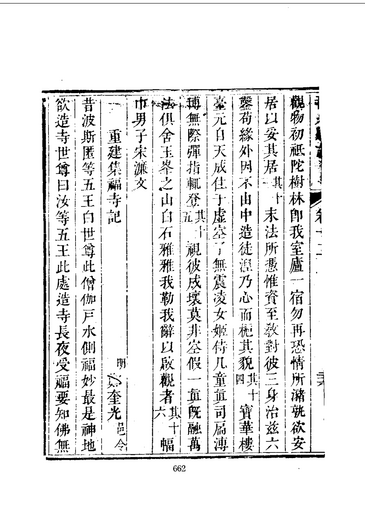 觀物初祇陀樹林即我室廬一宿勿再恐情所瀦就欲安
居以妄其居其十三末法所憑惟資至敎對彼三身治玆六
鑿苟緣外因不由中造徒湟乃心而梔其貌其十四寶華樓
臺元自天成住于虛空了無震凌女姬侍几童眞司扃溥
博無際彈指輒登其十五視彼成壞莫非空假一眞旣融萬
法俱舍玉峯之山白石雅雅我勒我辭以啟觀者其十六幅
巾男子宋濂文
重建集福寺記
明 奎光邑令
昔波斯匿等五王白世尊此僧伽尸水側福妙最是神地
欲造寺世尊曰汝等五王此處造寺長夜受福要知佛無
662